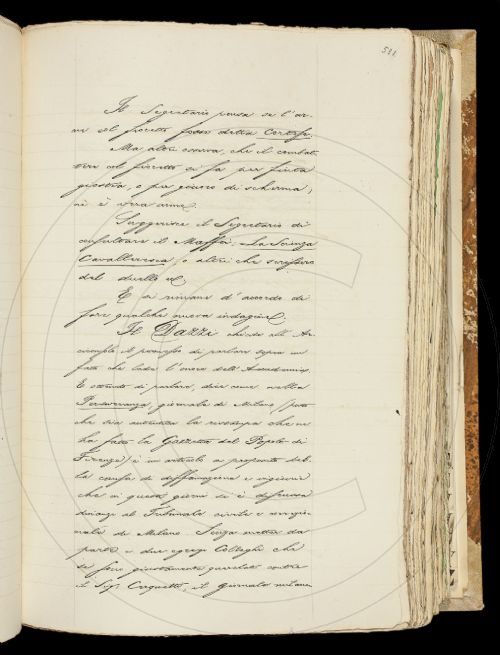 531
Il Segretario pensa se l'ar-
me col fioretto fosse detta Cortese.
Ma altri osserva, che il combat-
tere col fioretto si fa per finta
giostra, o per giuoco di scherma,
nè è vera arme.
Suggerisce il Segretario di
consultare il Maffei - La Scienza
Cavalleresca, o altri che scrissero
del duello
E si rimane d'accordo di
fare qualche nuova indagine.
Il Dazzi chiede all' Ar-
ciconsolo il permesso di parlare sopra un
fatto che lede l'onore dell'Accademia.
E ottenuto di parlare, dice come nella
Perseveranza, giornale di Milano (
che sia autentica la ristampa che ne
ha fatto la Gazzetta del Popolo di
Firenze) è un articolo a proposito del-
la causa di diffamazione e ingiurie
che in questi giorni si è discussa
dinanzi al Tribunale civile e correzio-
nale di Milano. Senza mettere da
parte i due egregi Colleghi che
si sono giustamente querelati contro
il Sig. Cerquetti, il giornale milanese